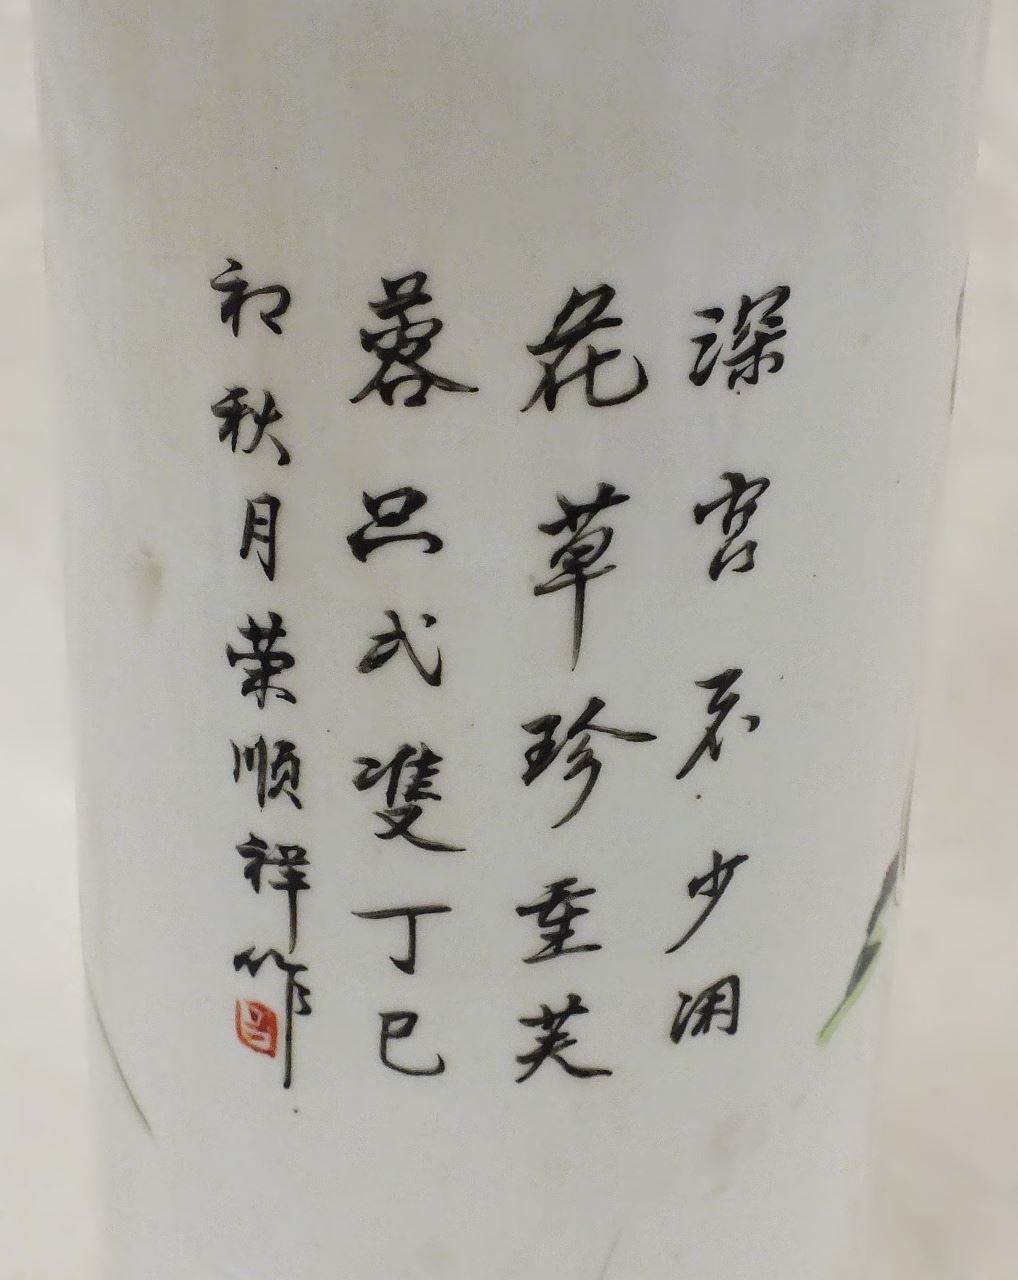 深宮不少闲
花草珍重芙
蓉只弍雙丁巳
初秋月荣順祥作